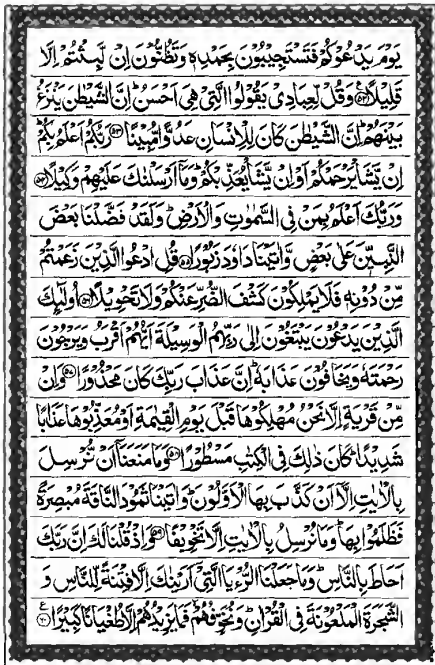 يَوْمَ يَدْعُوْكُمْ فَتَسْتَجِيْبُوْنَ بِحَمْدِهٖ وَتَظُنُّوْنَ اِنْ لَّبِثْتُمْ اِلَّا
قَلِيْلًا ﴿۵۲﴾ وَقُلْ لِّعِبَادِىْ يَقُوْلُوا الَّتِىْ هِىَ اَحْسَنُ ؕ اِنَّ الشَّيْطٰنَ يَنْزَغُ
بَيْنَهُمْ ؕ اِنَّ الشَّيْطٰنَ كَانَ لِلْاِنْسَانِ عَدُوًّا مُّبِيْنًا ﴿۵۳﴾ رَبُّكُمْ اَعْلَمُ بِكُمْ
اِنْ يَّشَاْ يَرْحَمْكُمْ اَوْ اِنْ يَّشَاْ يُعَذِّبْكُمْ ؕ وَمَاۤ اَرْسَلْنٰكَ عَلَيْهِمْ وَكِيْلًا ﴿۵۴﴾
وَرَبُّكَ اَعْلَمُ بِمَنْ فِى السَّمٰوٰتِ وَالْاَرْضِ ؕ وَلَقَدْ فَضَّلْنَا بَعْضَ
النَّبِيّٖنَ عَلٰى بَعْضٍ وَّاٰتَيْنَا دَاوٗدَ زَبُوْرًا ﴿۵۵﴾ قُلِ ادْعُوا الَّذِيْنَ زَعَمْتُمْ
مِّنْ دُوْنِهٖ فَلَا يَمْلِكُوْنَ كَشْفَ الضُّرِّ عَنْكُمْ وَلَا تَحْوِيْلًا ﴿۵۶﴾ اُولٰٓئِكَ
الَّذِيْنَ يَدْعُوْنَ يَبْتَغُوْنَ اِلٰى رَبِّهِمُ الْوَسِيْلَةَ اَيُّهُمْ اَقْرَبُ وَيَرْجُوْنَ
رَحْمَتَهٗ وَيَخَافُوْنَ عَذَابَهٗ ؕ اِنَّ عَذَابَ رَبِّكَ كَانَ مَحْذُوْرًا ﴿۵۷﴾ وَاِنْ
مِّنْ قَرْيَةٍ اِلَّا نَحْنُ مُهْلِكُوْهَا قَبْلَ يَوْمِ الْقِيٰمَةِ اَوْ مُعَذِّبُوْهَا عَذَابًا
شَدِيْدًا ؕ كَانَ ذٰلِكَ فِى الْكِتٰبِ مَسْطُوْرًا ﴿۵۸﴾ وَمَا مَنَعَنَاۤ اَنْ نُّرْسِلَ
بِالْاٰيٰتِ اِلَّاۤ اَنْ كَذَّبَ بِهَا الْاَوَّلُوْنَ ؕ وَاٰتَيْنَا ثَمُوْدَ النَّاقَةَ مُبْصِرَةً
فَظَلَمُوْا بِهَا ؕ وَمَا نُرْسِلُ بِالْاٰيٰتِ اِلَّا تَخْوِيْفًا ﴿۵۹﴾ وَاِذْ قُلْنَا لَكَ اِنَّ رَبَّكَ
اَحَاطَ بِالنَّاسِ ؕ وَمَا جَعَلْنَا الرُّءْيَا الَّتِىْۤ اَرَيْنٰكَ اِلَّا فِتْنَةً لِّلنَّاسِ وَ
الشَّجَرَةَ الْمَلْعُوْنَةَ فِى الْقُرْاٰنِ ؕ وَنُخَوِّفُهُمْ ۙ فَمَا يَزِيْدُهُمْ اِلَّا طُغْيَانًا كَبِيْرًا ﴿۶۰﴾